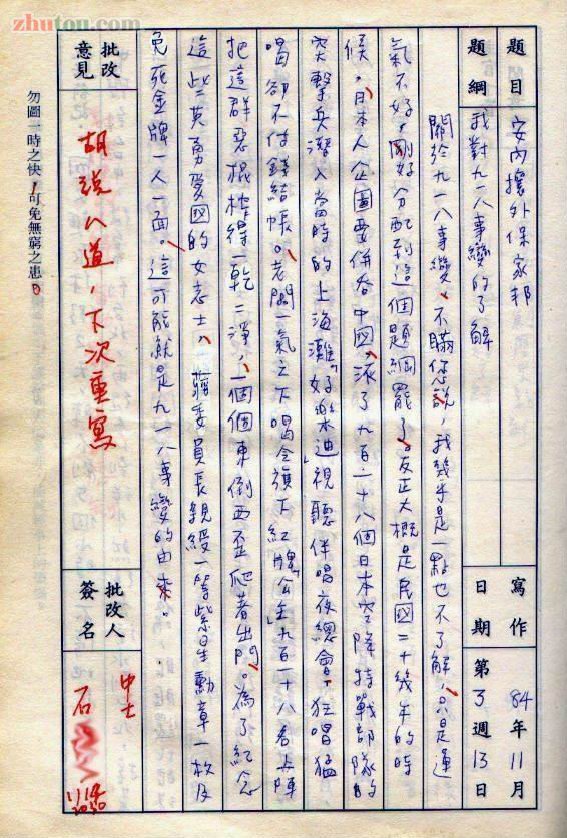 zhutou.com
題目
安內攘外保家邦
題綱
我對九一八事變的了解
寫作日期
84年11月
第3週13日
關於九一八事變、不瞞您說,我幾乎是一點也不了解,只是運
氣不好,剛好分配到這個題綱罷了。反正大概是民國二十幾年的時
候,日本人企圖要併吞中國,派了九百一十八個日本空降特戰部隊的
突擊兵潛入當時的上海灘「好樂迪」視聽伴唱夜總會,狂唱猛
唱卻不付錢結帳。老闆一氣之下唱令旗下紅牌「公主」九百一十八名上陣
把這群惡棍榨得一乾二淨,一個個東倒西歪爬著出門。為了紀念
這些英勇愛國的女志士,蔣委員長親綬一等紫星勳章一枚及
免死金牌一人一面。這可能就是九一八事變的由來。
批改意見
胡說八道,下次重寫
批改人簽名
中士
石
11/14
2030
勿圖一時之快,可免無窮之患。